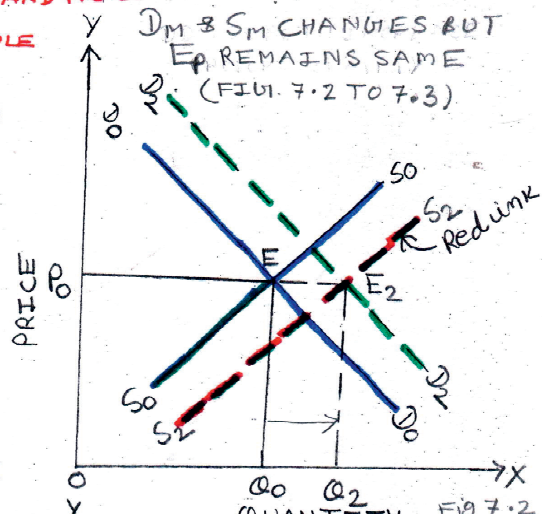 Y
DM & SM CHANGES BUT
EP REMAINS SAME
(FIG. 7.2 TO 7.3)
D2
D0
S0
S2
Red ink
E
E2
P0
PRICE
S0
S2
D2
D0
O
Q0
Q2
X
Y
QUANTITY
Fig 7.2